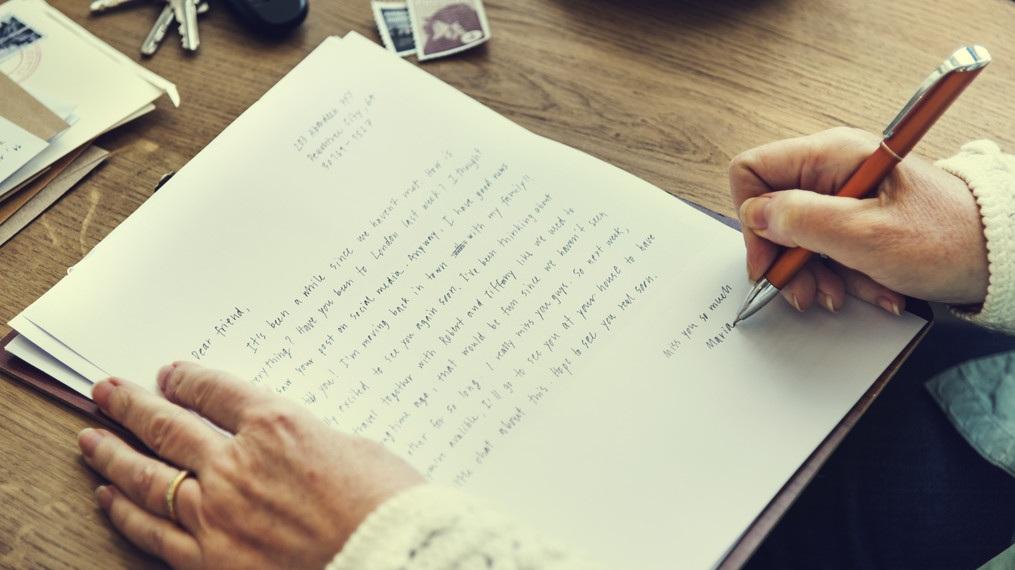 Peachtree City, GA
30269-0327
Dear friend,
It's been a while since we haven't met. How is
everything? Have you been to London last week? I thought
saw your post on social media. Anyway, I have good news
you! I'm moving back in town with my family!!
excited to see you again soon. I've been thinking about
travel together with Robert and Tiffany like we used to
time ago, that would be fun since we haven't seen
other for so long. I really miss you guys. So next week,
I'll go to see you at your house to have
little chat about this. Hope to see you real soon.
Miss you so much
Maria